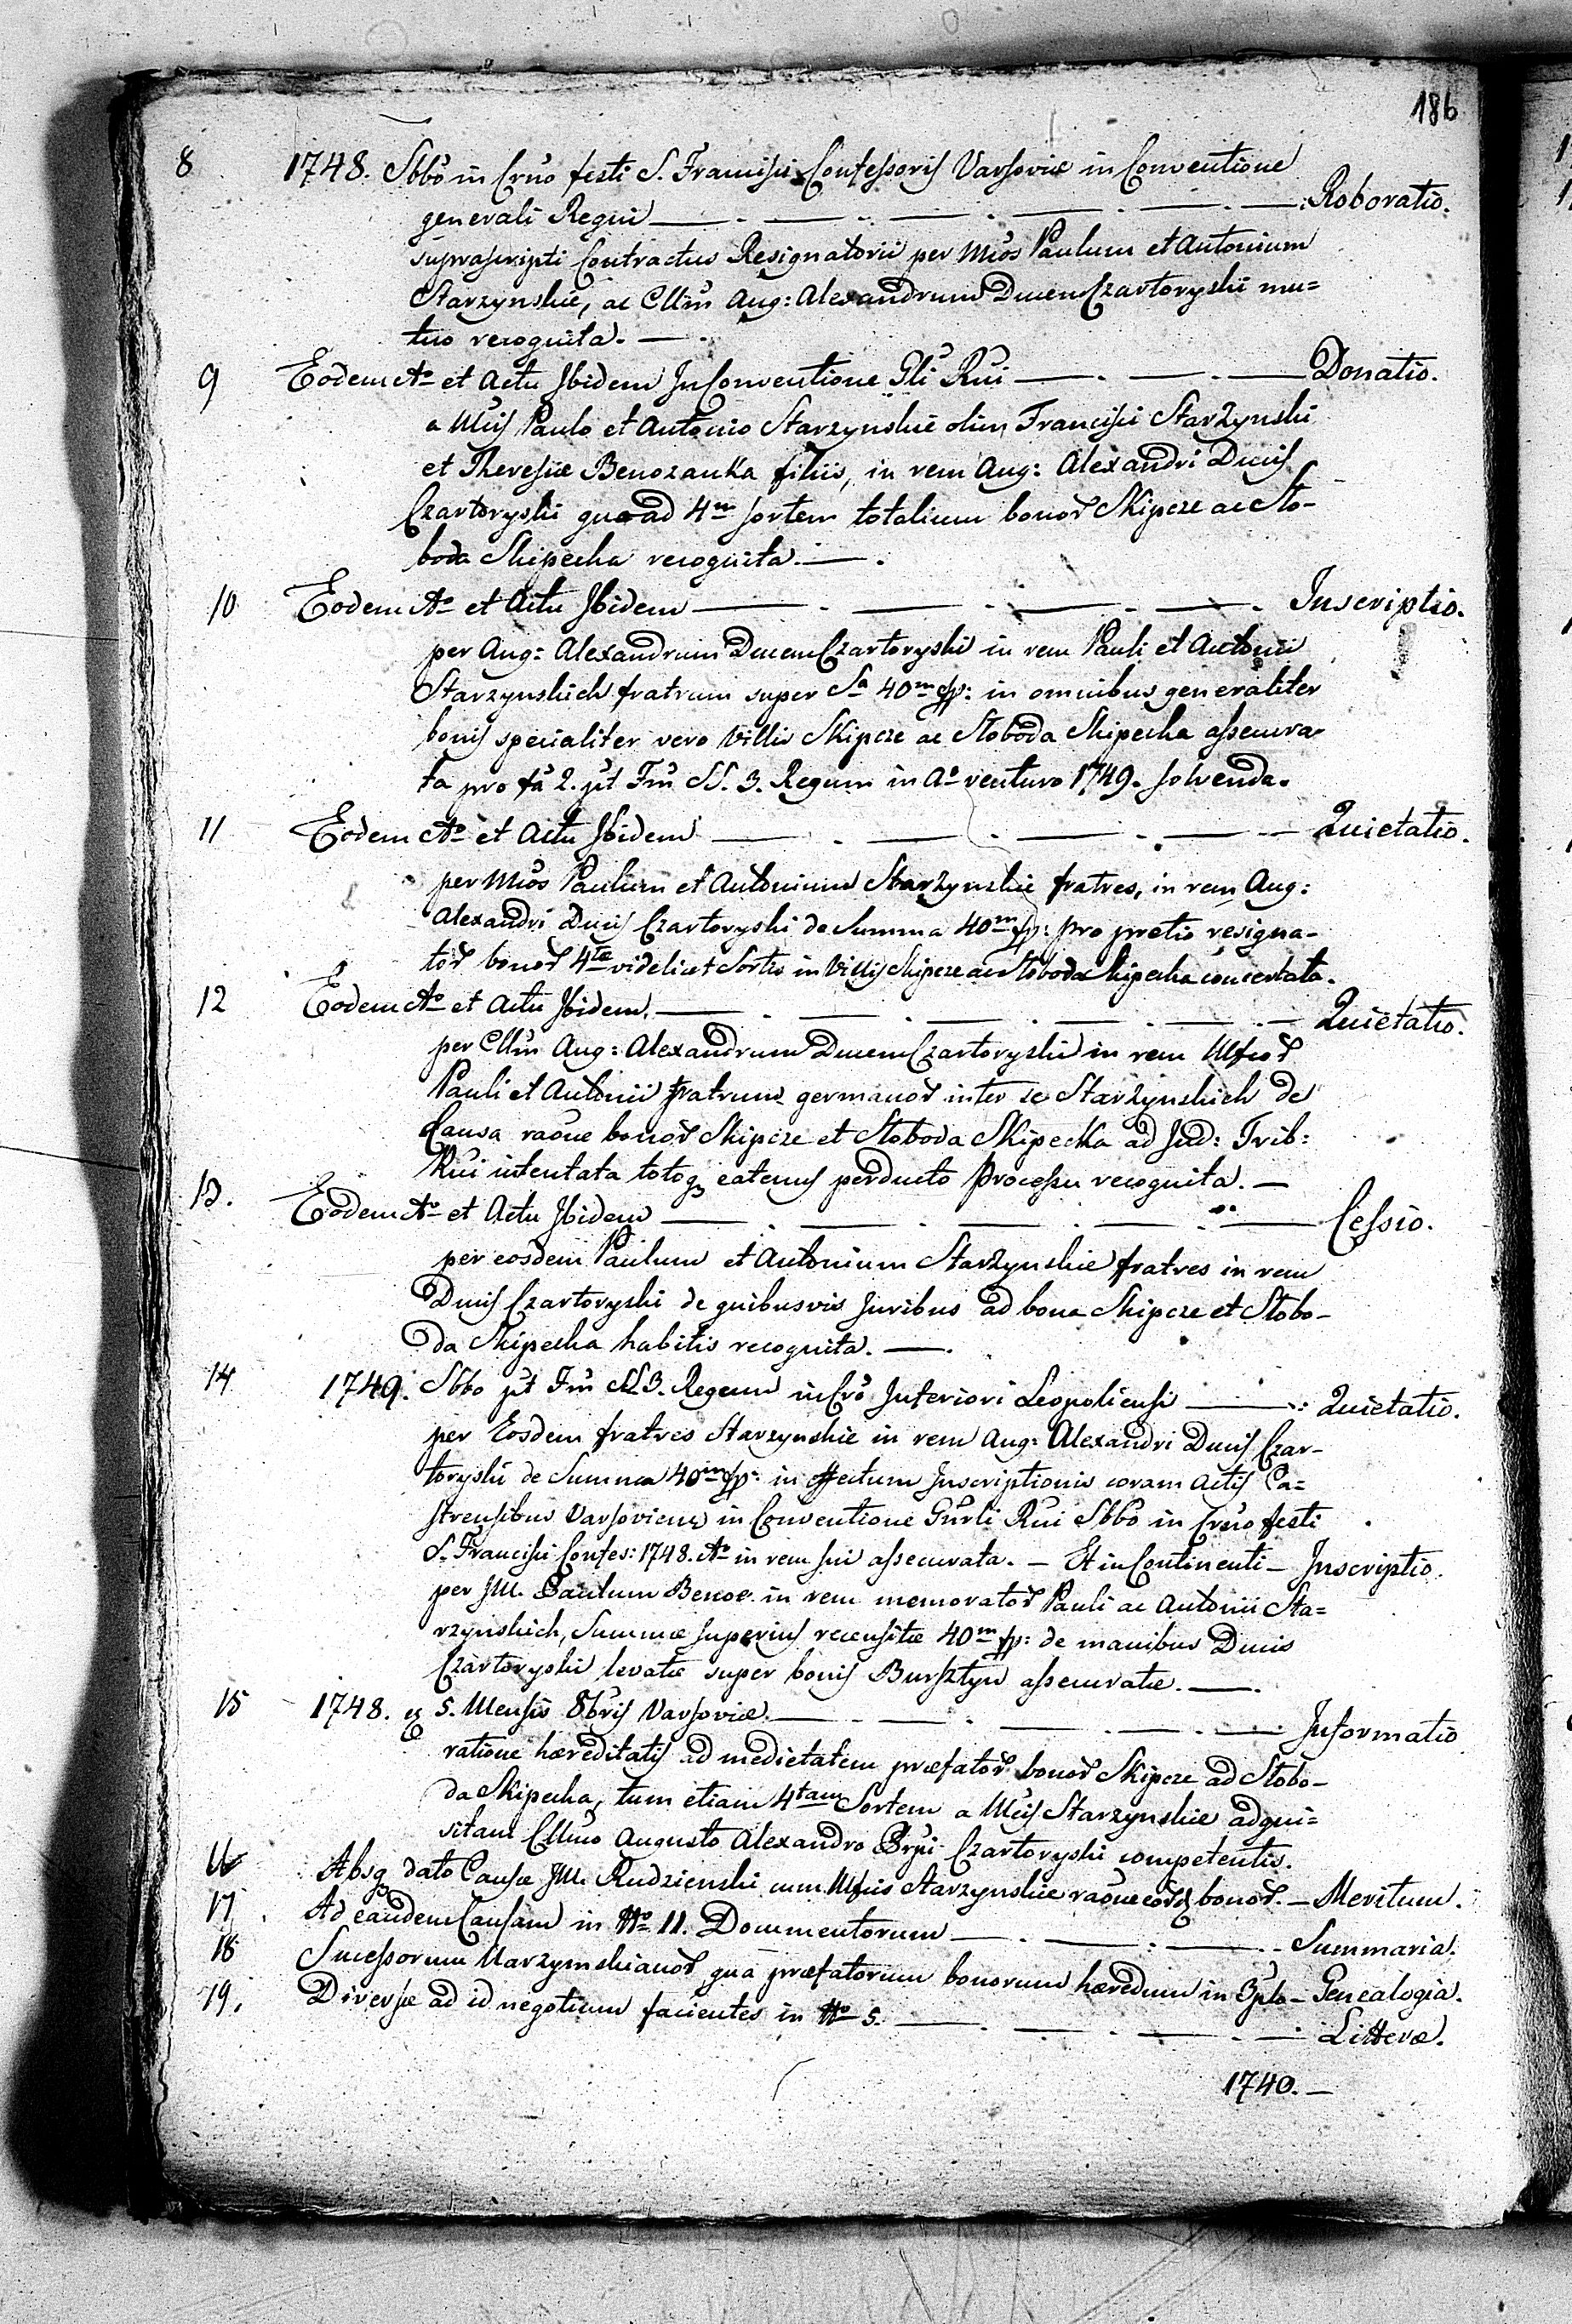 186
8 1748. Sbbo in Crno festi S. Francisci Confessoris Varsoviæ in Conventione
generali Regni — . — . — . — . — . — : Roboratio.
suprascripti Contractus Resignatorii per Mcos Paulum et Antonium
Starzynskie, ac Cllm Aug: Alexandrum Ducem Czartoryski mu=
tuo recognita. — .
9 Eodem Ao et Actu Ibidem In Conventione Gli Rni — . — . — Donatio.
a Mcis Paulo et Antonio Starzynskie olim Francisci Starzynski
et Theresiæ Benozanka filiis, in rem Aug: Alexandri Ducis
Czartoryski quoad 4m sortem totalium bonor Skipcze ac Sło-
boda Skipecka recognita. — .
10 Eodem Ao et Actu Ibidem — . — . — . — . Inscriptio.
per Aug: Alexandrum Ducem Czartoryski in rem Pauli et Antonii
Starzynskich fratrum super Sa 40m fp: in omnibus generaliter
bonis specialiter vero Villis Skipcze ac Słoboda Skipecka assecura-
ta pro fa 2. pt Fm SS. 3. Regum in Ao venturo 1749. solvenda.
11 Eodem Ao et Actu Ibidem — . — . — . — Quietatio.
per Mcos Paulum et Antonium Starzynskie fratres, in rem Aug:
Alexandri Ducis Czartoryski de Summa 40m fp: pro pretio resigna-
tor bonor 4tæ videlicet Sortis in Villis Skipcze ac Słoboda Skipecka concertata.
12 Eodem Ao et Actu Ibidem. — . — . — . — . — Quietatio.
per Cllm Aug: Alexandrum Ducem Czartoryski in rem Mfcor
Pauli et Antonii fratrum germanor inter se Starzynskich de
Causa raone bonor Skipcze et Słoboda Skipecka ad Jud: Trib:
Rni intentata totoq eatenus perducto Processu recognita. —
13. Eodem Ao et Actu Ibidem — . — . — . — . — Cessio.
per eosdem Paulum et Antonium Starzynskie fratres in rem
Ducis Czartoryski de quibusvis Juribus ad bona Skipcze et Słobo-
da Skipecka habitis recognita. — .
14 1749. Sbbo pt Fm SS. 3. Regum in Cro Inferiori Leopoliensi — : Quietatio.
per Eosdem fratres Starzynskie in rem Aug: Alexandri Ducis Czar-
toryski de Summa 40m fp: in effectum Inscriptionis coram Actis Ca=
strensibus Varsovien in Conventione Gnrli Rni Sbbo in Crno festi
S. Francisci Confes: 1748. Ao in rem sui assecurata. — Et in Continenti — Inscriptio.
per JM. Paulum Benoe in rem memorator Pauli ac Antonii Sta=
rzynskich, Summæ superius recensitæ 40m fp: de manibus Ducis
Czartoryski levatæ super bonis Bursztyn assecuratæ. — .
15 1748. 5. Mensis 8bris Varsoviæ. — . — . — . — . — Informatio
ratione hæreditatis ad medietatem præfator bonor Skipcze ad Słobo-
da Skipecka, tum etiam 4tam Sortem a Mcis Starzynskie adqui=
sitam Cllmo Augusto Alexandro Czartoryski competentis.
16 Absq dato Causæ JM. Rudzienski cum Mfcis Starzynskie raone eord bonor. — Meritum.
17 Ad eandem Causam in No 11. Documentorum — . — . — . Summaria.
18 Successorum qua præfatorum bonorum hæredum in 3plo — Genealogia.
19. Diversæ ad id negotium facientes in No 5. — . — . — . — Litteræ.
1740. —